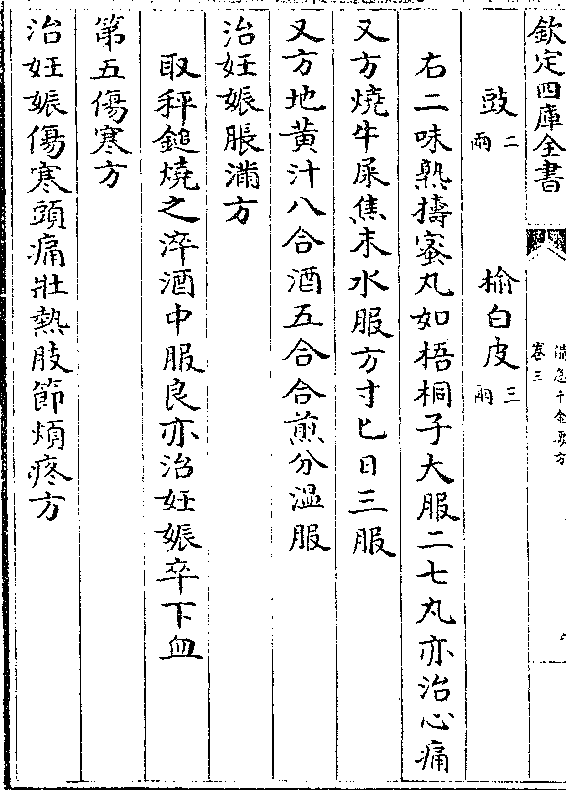 欽定四庫全書
備急千金要方
卷三
豉二兩 榆白皮三兩
右二味熟擣蜜丸如梧桐子大服二七丸亦治心痛
又方燒牛屎焦末水服方寸匕日三服
又方地黄汁八合酒五合合煎分温服
治妊娠脹滿方
取秤鎚燒之淬酒中服良亦治妊娠卒下血
第五傷寒方
治妊娠傷寒頭痛壯熱肢節煩疼方